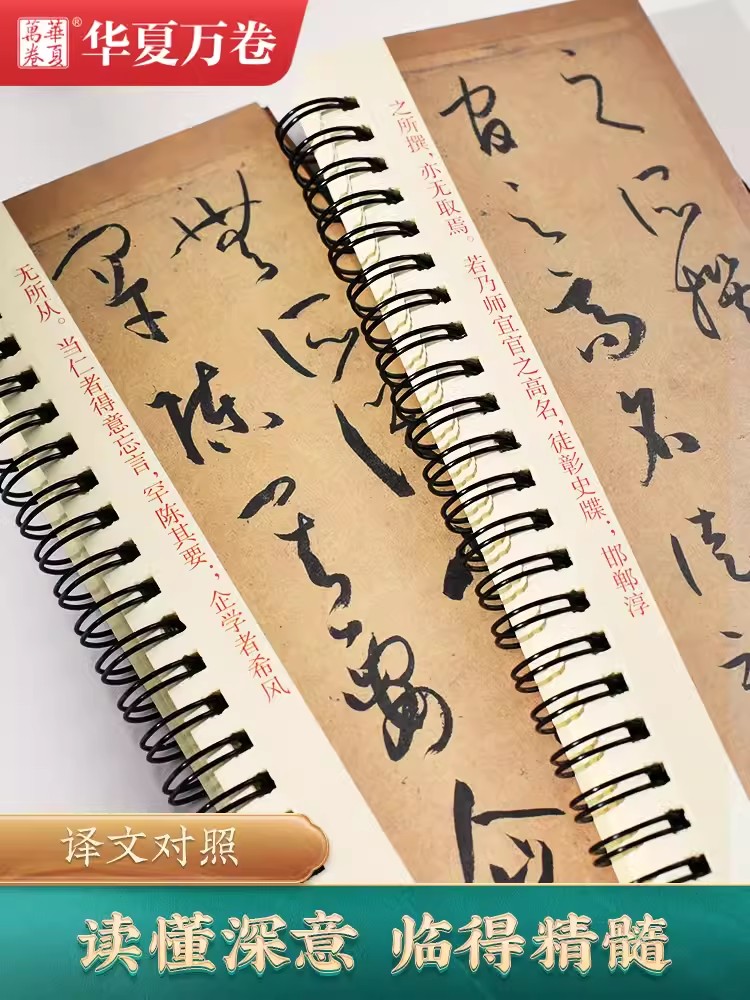 華夏
萬卷
®
华夏万卷
之所撰
官之高名徒
之所撰，亦无取焉。若乃师宜官之高名，徒彰史牒；邯郸淳
無所從
罕陳其要
无所从。当仁者得意忘言，罕陈其要；企学者希风
译文对照
读懂深意 临得精髓